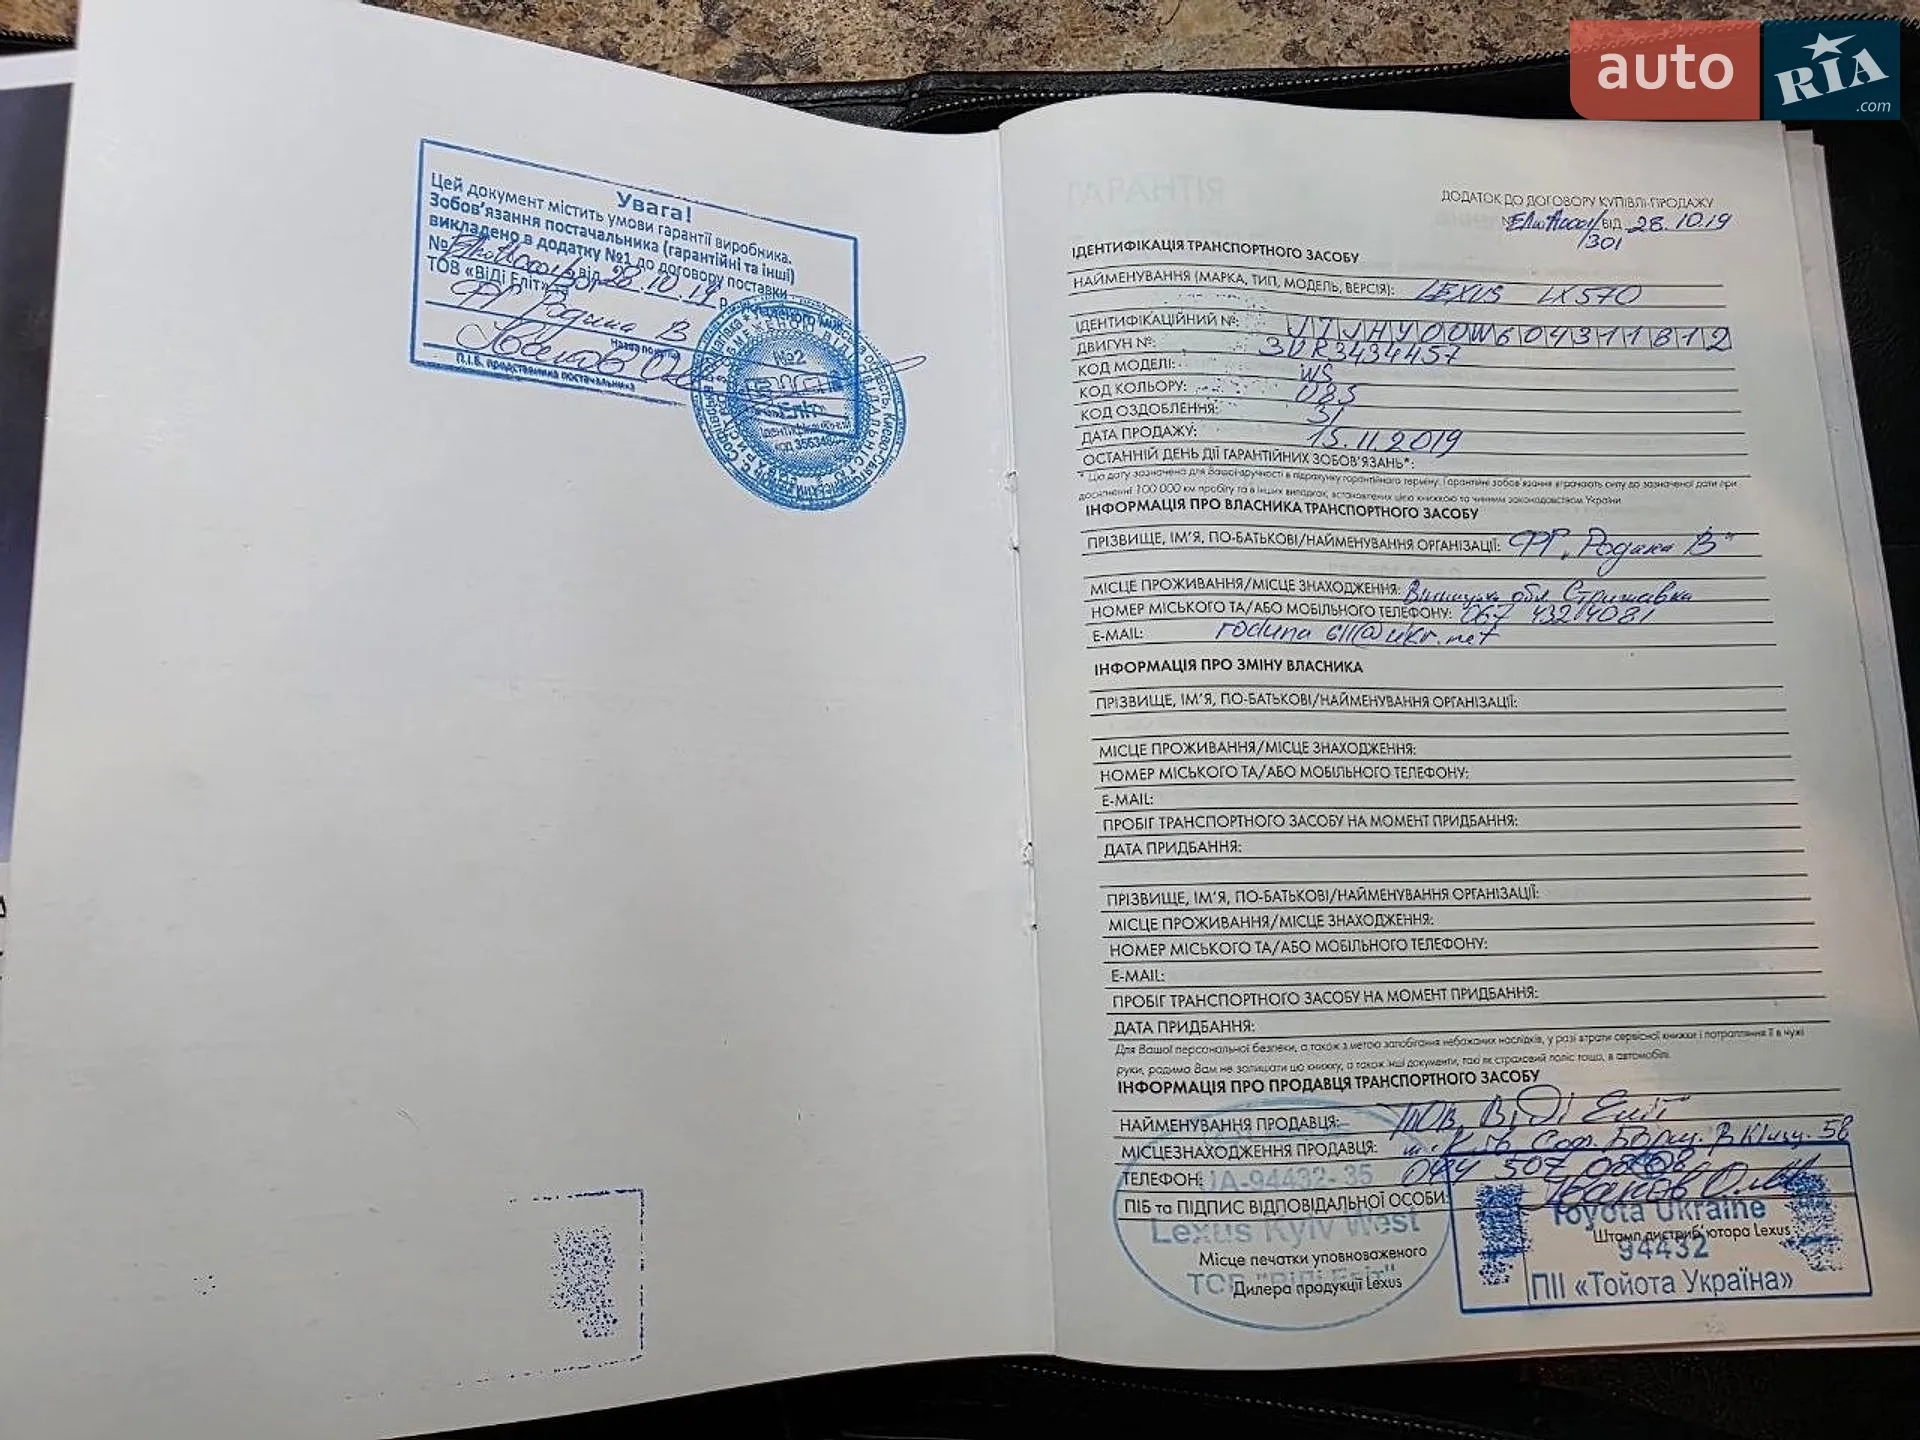 auto RIA.com
Увага!
Цей документ містить умови гарантії виробника.
Зобов'язання постачальника (гарантійні та інші)
викладено в додатку №1 до договору поставки
№ від 28.10.19 р.
ТОВ «ВіДі Еліт» та
ФГ Родина В
Назва покупця
П.І.Б. представника постачальника
№2
ДОДАТОК ДО ДОГОВОРУ КУПІВЛІ-ПРОДАЖУ
№ ВІД 28.10.19
/301
ІДЕНТИФІКАЦІЯ ТРАНСПОРТНОГО ЗАСОБУ
НАЙМЕНУВАННЯ (МАРКА, ТИП, МОДЕЛЬ, ВЕРСІЯ): LEXUS LX570
ІДЕНТИФІКАЦІЙНИЙ №: JTJHY00W604311812
ДВИГУН №: 3UR3434457
КОД МОДЕЛІ: WS
КОД КОЛЬОРУ: 085
КОД ОЗДОБЛЕННЯ: 31
ДАТА ПРОДАЖУ: 15.11.2019
ОСТАННІЙ ДЕНЬ ДІЇ ГАРАНТІЙНИХ ЗОБОВ'ЯЗАНЬ*:
* Цю дату зазначено для Вашої зручності в підрахунку гарантійного терміну. Гарантійні зобов'язання втрачають силу до зазначеної дати при
досягненні 100 000 км пробігу та в інших випадках, встановлених цією книжкою та чинним законодавством України.
ІНФОРМАЦІЯ ПРО ВЛАСНИКА ТРАНСПОРТНОГО ЗАСОБУ
ПРІЗВИЩЕ, ІМ'Я, ПО-БАТЬКОВІ/НАЙМЕНУВАННЯ ОРГАНІЗАЦІЇ: ФГ „Родина В"
МІСЦЕ ПРОЖИВАННЯ/МІСЦЕ ЗНАХОДЖЕННЯ: обл Стрижавка
НОМЕР МІСЬКОГО ТА/АБО МОБІЛЬНОГО ТЕЛЕФОНУ: 067 43214081
E-MAIL: roduna 611@ukr.net
ІНФОРМАЦІЯ ПРО ЗМІНУ ВЛАСНИКА
ПРІЗВИЩЕ, ІМ'Я, ПО-БАТЬКОВІ/НАЙМЕНУВАННЯ ОРГАНІЗАЦІЇ:
МІСЦЕ ПРОЖИВАННЯ/МІСЦЕ ЗНАХОДЖЕННЯ:
НОМЕР МІСЬКОГО ТА/АБО МОБІЛЬНОГО ТЕЛЕФОНУ:
E-MAIL:
ПРОБІГ ТРАНСПОРТНОГО ЗАСОБУ НА МОМЕНТ ПРИДБАННЯ:
ДАТА ПРИДБАННЯ:
ПРІЗВИЩЕ, ІМ'Я, ПО-БАТЬКОВІ/НАЙМЕНУВАННЯ ОРГАНІЗАЦІЇ:
МІСЦЕ ПРОЖИВАННЯ/МІСЦЕ ЗНАХОДЖЕННЯ:
НОМЕР МІСЬКОГО ТА/АБО МОБІЛЬНОГО ТЕЛЕФОНУ:
E-MAIL:
ПРОБІГ ТРАНСПОРТНОГО ЗАСОБУ НА МОМЕНТ ПРИДБАННЯ:
ДАТА ПРИДБАННЯ:
Для Вашої персональної безпеки, а також з метою запобігання небажаних наслідків, у разі втрати сервісної книжки і потрапляння її в чужі
руки, радимо Вам не залишати цю книжку, а також інші документи, такі як страховий поліс тощо, в автомобілі.
ІНФОРМАЦІЯ ПРО ПРОДАВЦЯ ТРАНСПОРТНОГО ЗАСОБУ
НАЙМЕНУВАННЯ ПРОДАВЦЯ: ТОВ „ВіДі Еліт"
МІСЦЕЗНАХОДЖЕННЯ ПРОДАВЦЯ: Соф. Борщ. В. Кільц. 58
ТЕЛЕФОН: 044 507
ПІБ та ПІДПИС ВІДПОВІДАЛЬНОЇ ОСОБИ:
UA-94432-35
Lexus Kyiv West
Місце печатки уповноваженого
Дилера продукції Lexus
Toyota Ukraine
Штамп дистриб'ютора Lexus
94432
ПІІ «Тойота Україна»